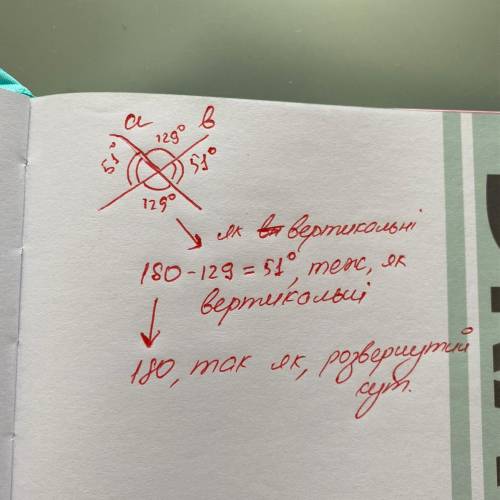 a b
129°
51° 51°
129°
як вертикольні
180-129=51°, теж, як
вертикольні
180, так як, розвернутий
кут.